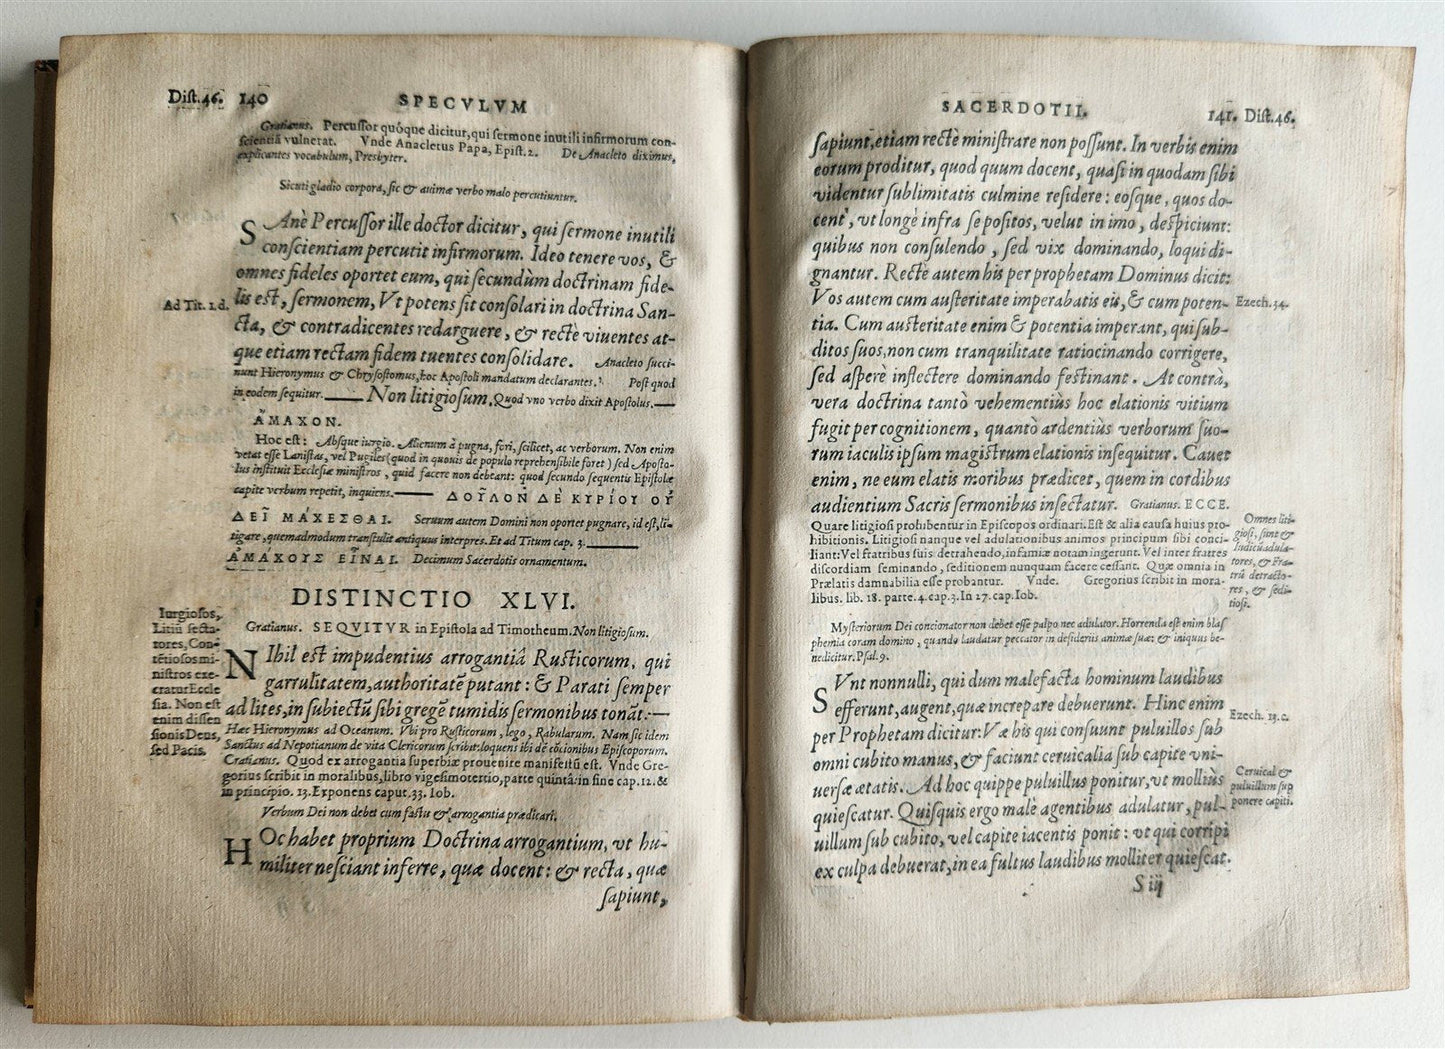 Dist.46. 140 SPECVLVM
Gratianus. Percussor quóque dicitur, qui sermone inutili infirmorum con-
scientiã vulnerat. Vnde Anacletus Papa, Epist.2. De Anacleto diximus,
explicantes vocabulum, Presbyter.
Sicuti gladio corpora, sic & animæ verbo malo percutiuntur.
SAnè Percussor ille doctor dicitur, qui sermone inutili
conscientiam percutit infirmorum. Ideo tenere vos, &
omnes fideles oportet eum, qui secundùm doctrinam fide-
Ad Tit. 1.d.
lis est, sermonem, Vt potens sit consolari in doctrina San-
cta, & contradicentes redarguere, & rectè viuentes at-
que etiam rectam fidem tuentes consolidare. Anacleto succi-
nunt Hieronymus & Chrysostomus, hoc Apostoli mandatum declarantes. Post quod
in eodem sequitur. Non litigiosum. Quod vno verbo dixit Apostolus.
ἌΜΑΧΟΝ.
Hoc est: Absque iurgio. Alienum à pugna, fori, scilicet, ac verborum. Non enim
vetat esse Lanistas, vel Pugiles (quod in quouis de populo reprehensibile foret) sed Aposto-
lus instituit Ecclesiæ ministros, quid facere non debeant: quod secundo sequentis Epistolæ
capite verbum repetit, inquiens. ΔΟΥ͂ΛΟΝ ΔῈ ΚΥΡΊΟΥ ΟΥ̓
ΔΕΙ͂ ΜΆΧΕΣΘΑΙ. Seruum autem Domini non oportet pugnare, id est, li-
tigare, quemadmodum transtulit antiquus interpres. Et ad Titum cap. 3.
ἈΜΆΧΟΥΣ ΕἾΝΑΙ. Decimum Sacerdotis ornamentum.
DISTINCTIO XLVI.
Gratianus. SEQVITVR in Epistola ad Timotheum. Non litigiosum.
Iurgiosos,
Litiũ secta-
tores, Con-
tẽtiosos mi-
nistros exe-
cratur Eccle
sia. Non est
enim dissen
sionis Deus,
sed Pacis.
NIhil est impudentius arrogantiâ Rusticorum, qui
garrulitatem, authoritatẽ putant: & Parati semper
ad lites, in subiectũ sibi gregẽ tumidis sermonibus tonãt.
Hæc Hieronymus ad Oceanum. Vbi pro Rusticorum, lego, Rabularum. Nam sic idem
Sanctus ad Nepotianum de vita Clericorum scribit: loquens ibi dè cõcionibus Episcoporum.
Gratianus. Quod ex arrogantia superbiæ prouenire manifestũ est. Vnde Gre-
gorius scribit in moralibus, libro vigesimotertio, parte quintâ: in fine cap. 12. &
in principio. 13. Exponens caput. 33. Iob.
Verbum Dei non debet cum fastu & arrogantia prædicari.
HOc habet proprium Doctrina arrogantium, vt hu-
militer nesciant inferre, quæ docent: & recta, quæ
sapiunt,
SACERDOTII. 141. Dist.46.
sapiunt, etiam rectè ministrare non possunt. In verbis enim
eorum proditur, quod quum docent, quasi in quodam sibi
videntur sublimitatis culmine residere: eosque, quos do-
cent, vt longè infra se positos, velut in imo, despiciunt:
quibus non consulendo, sed vix dominando, loqui di-
gnantur. Rectè autem his per prophetam Dominus dicit:
Vos autem cum austeritate imperabatis eis, & cum poten-
Ezech. 34.
tia. Cum austeritate enim & potentia imperant, qui sub-
ditos suos, non cum tranquilitate ratiocinando corrigere,
sed asperè inflectere dominando festinant. At contrà,
vera doctrina tantò vehementiùs hoc elationis vitium
fugit per cognitionem, quantò ardentiùs verborum suo-
rum iaculis ipsum magistrum elationis insequitur. Cauet
enim, ne eum elatis moribus prædicet, quem in cordibus
audientium Sacris sermonibus insectatur. Gratianus. ECCE.
Quare litigiosi prohibentur in Episcopos ordinari. Est & alia causa huius pro-
hibitionis. Litigiosi nanque vel adulationibus animos principum sibi conci-
liant: Vel fratribus suis detrahendo, infamiæ notam ingerunt. Vel inter fratres
discordiam seminando, seditionem nunquam facere cessant. Quæ omnia in
Prælatis damnabilia esse probantur. Vnde. Gregorius scribit in mora-
libus. lib. 18. parte. 4. cap. 3. In 27. cap. Iob.
Omnes liti-
giosi, sunt &
Iudicũ adula-
tores, & Fra-
trũ detracto-
res, & sedi-
tiosi.
Mysteriorum Dei concionator non debet esse palpo nec adulator. Horrenda est enim blas
phemia coram domino, quando laudatur peccator in desideriis animæ suæ: & iniquus be-
nedicitur. Psal. 9.
SVnt nonnulli, qui dum malefacta hominum laudibus
efferunt, augent, quæ increpare debuerunt. Hinc enim
Ezech. 13.c.
per Prophetam dicitur: Væ his qui consuunt puluillos sub
omni cubito manus, & faciunt ceruicalia sub capite vni-
uersæ ætatis. Ad hoc quippe puluillus ponitur, vt molliùs
Ceruical &
puluillum sup
ponere capiti.
quiescatur. Quisquis ergo malè agentibus adulatur, pul-
uillum sub cubito, vel capite iacentis ponit: vt qui corripi
ex culpa debuerat, in ea fultus laudibus molliter quiescat.
S iij